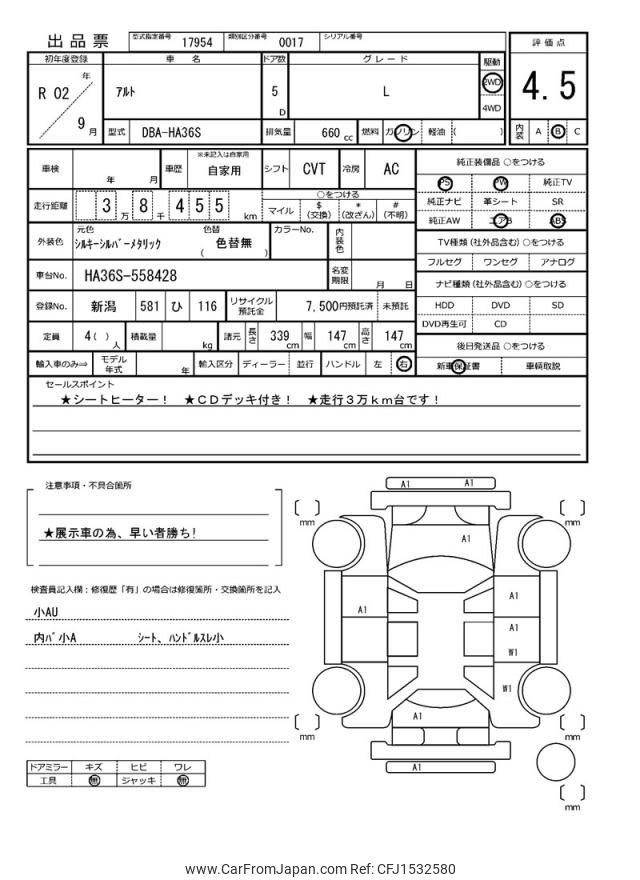 出品票
型式指定番号 17954 類別区分番号 0017 シリアル番号
初年度登録 車名 ドア数 グレード 駆動 評価点
R 02 年 9 月
アルト 5 D L 2WD 4WD
4.5
型式 DBA-HA36S 排気量 660 cc 燃料 ガソリン 軽油 ( ) 内装 A B C
車検 年 月 車歴 ※未記入は自家用 自家用 シフト CVT 冷房 AC
純正装備品 ○をつける
PS PW 純正TV
走行距離 3 万 8 千 4 5 5 km
○をつける
マイル $ (交換) * (改ざん) # (不明)
純正ナビ 革シート SR
純正AW エアB ABS
外装色 元色 シルキーシルバーメタリック 色替 ( 色替無 ) カラーNo. 内装色
TV種類 (社外品含む) ○をつける
フルセグ ワンセグ アナログ
車台No. HA36S-558428 名変期限 月 日
ナビ種類 (社外品含む) ○をつける
登録No. 新潟 581 ひ 116 リサイクル預託金 7,500円預託済 未預託
HDD DVD SD
DVD再生可 CD
定員 4( ) 人 積載量 kg 諸元 長さ 339 cm 幅 147 cm 高さ 147 cm
後日発送品 ○をつける
輸入車のみ⇒ モデル年式 年 輸入区分 ディーラー 並行 ハンドル 左 右
新車保証書 車輌取説
セールスポイント
★シートヒーター! ★CDデッキ付き! ★走行3万km台です!
注意事項・不具合箇所
★展示車の為、早い者勝ち!
検査員記入欄:修復歴「有」の場合は修復箇所・交換箇所を記入
小AU
内バ小A シート、ハンドルスレ小
A1 A1
mm mm
A1
A1 A1
A1
W1
W1
A1
mm mm
A1
mm
ドアミラー キズ ヒビ ワレ
工具 無 ジャッキ 無
www.CarFromJapan.com Ref: CFJ1532580